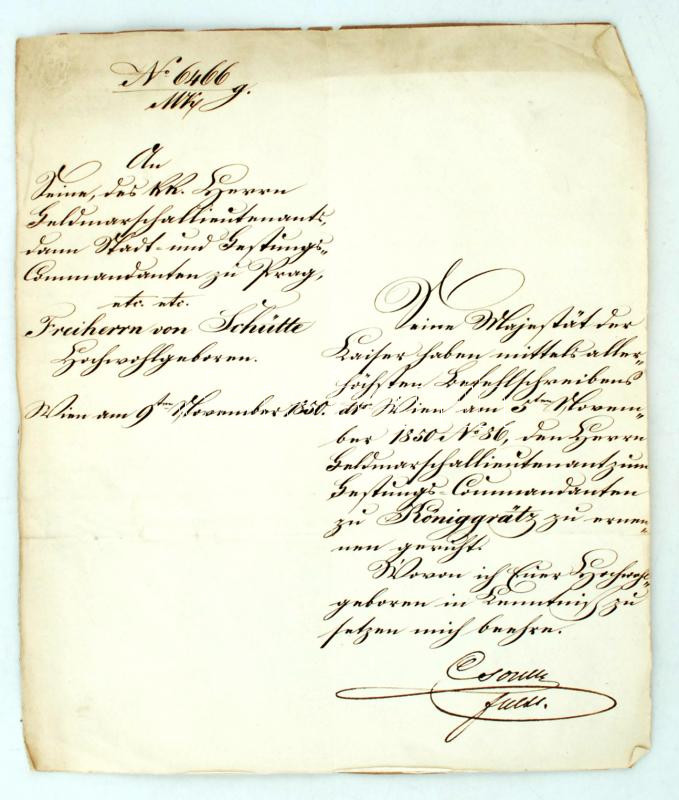 No 6466
MK g.
An
Seine, des KK. Herrn
Feldmarschallieutenants,
dann Stadt- und Festungs-
Commandanten zu Prag,
etc. etc.
Freiherrn von Schütte
Hochwohlgeboren.
Wien am 9ten November 1850.
Seine Majestät der
Kaiser haben mittels aller-
höchsten Befehlschreibens
dto Wien am 5ten Novem-
ber 1850 No 86, den Herrn
Feldmarschallieutenant zum
Festungs-Commandanten
zu Königgrätz zu ernen-
nen geruht.
Wovon ich Euer Hochwohl-
geboren in Kenntniß zu
setzen mich beehre.